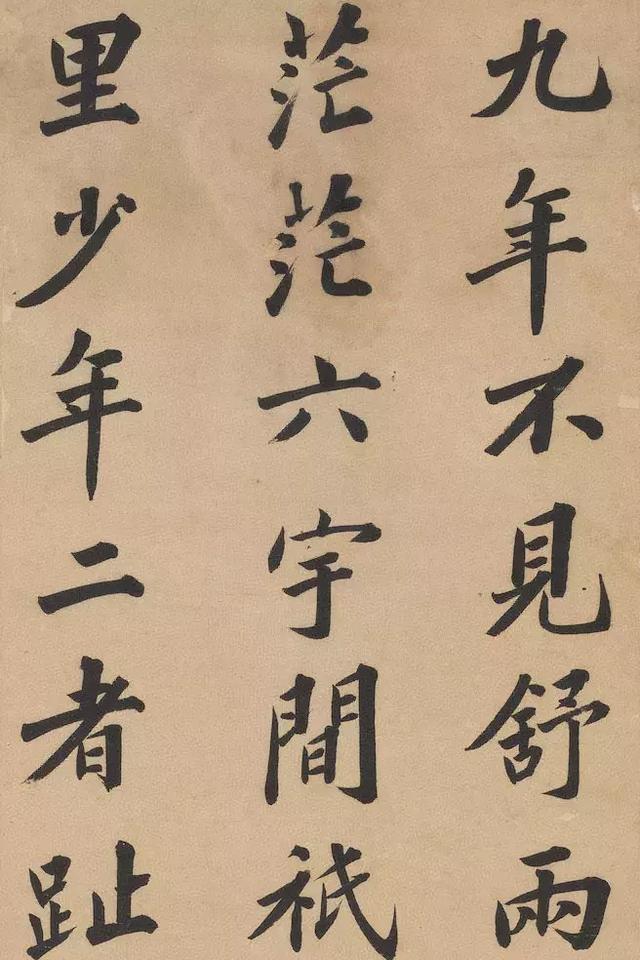 九年不見舒兩
茫茫六宇間祇
里少年二者趾